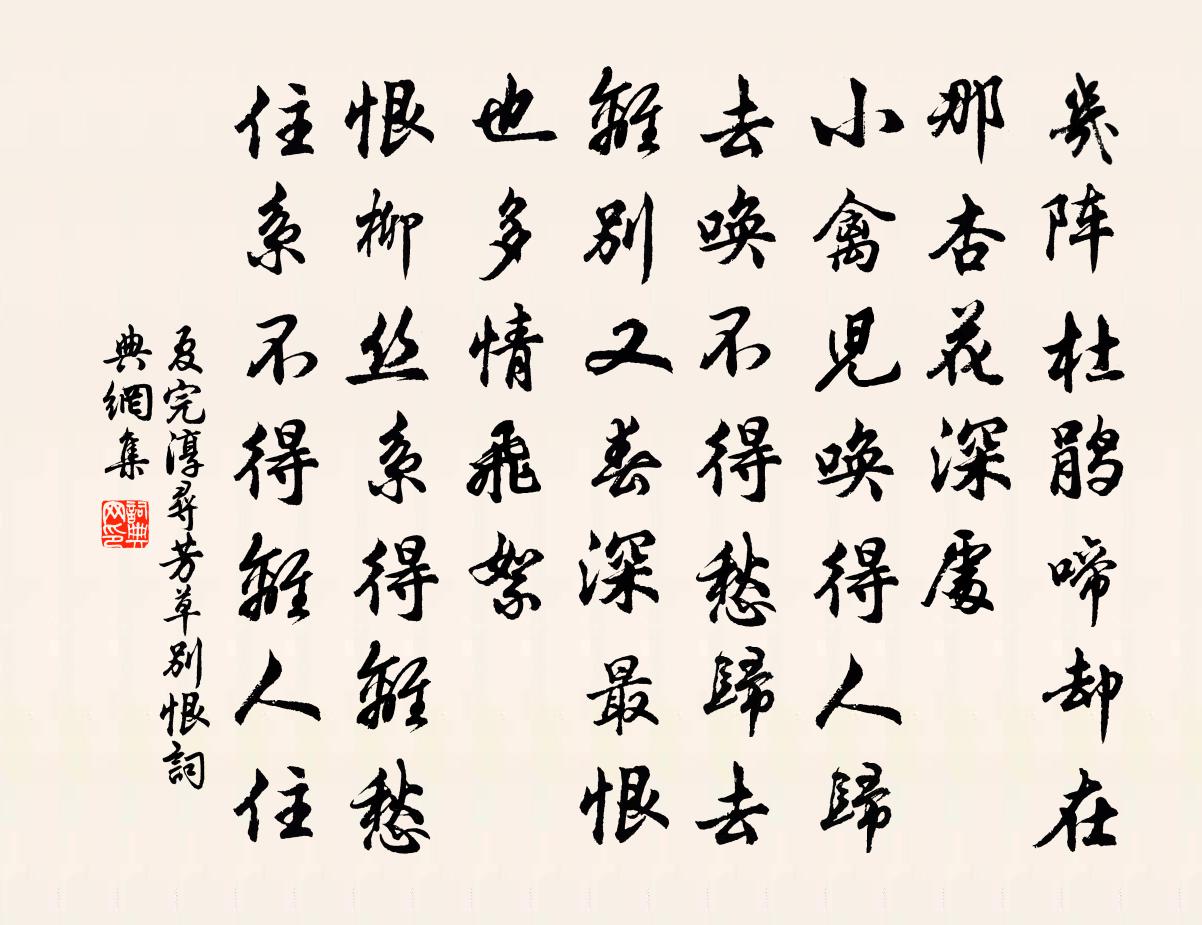 幾阵杜鹃啼却在
那杏花深處
小禽児唤得人歸
去唤不得愁歸去
離别又春深最恨
也多情飛絮
恨柳丝系得離愁
住系不得離人住
夏完淳尋芳草别恨詞
典網集
詞典網印